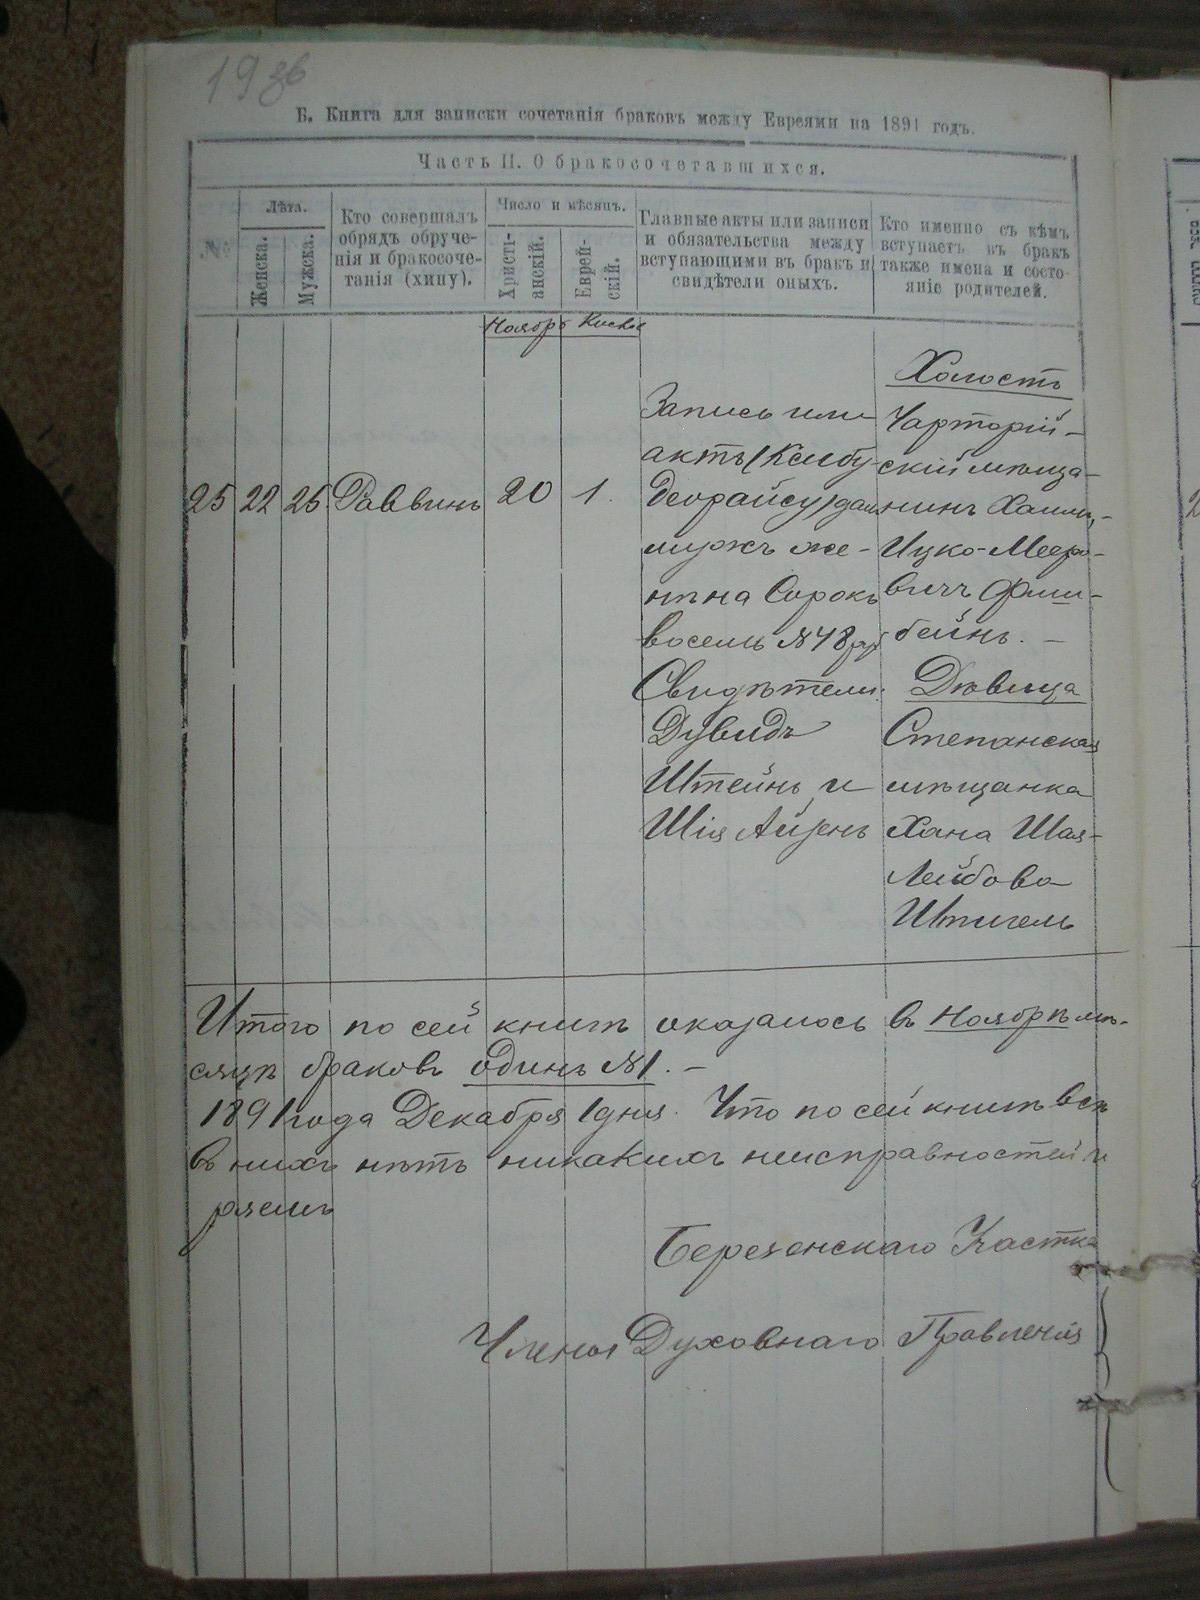 19 зв
Б. Книга для записки сочетанія браковъ между Евреями на 1891 годъ.
Часть II. О бракосочетавшихся.
№
Лѣта.
Женска.
Мужска.
Кто совершалъ
обрядъ обруче-
нія и бракосоче-
танія (хипу).
Число и мѣсяцъ.
Христі-
анскій.
Еврей-
скій.
Главные акты или записи
и обязательства между
вступающими въ бракъ и
свидѣтели оныхъ.
Кто именно съ кѣмъ
вступаетъ въ бракъ
также имена и состо-
яніе родителей.
Ноябрь Кислев
25 22 26 Раввинъ 20 1.
Запись или
актъ (Ксибу-
деорайсу) дал
мужъ же-
нѣ на Сорокъ
восемь №48 руб
Свидѣтели:
Дувидъ
Штейнъ и
Шія Айзенъ
Холостъ
Чарторій-
скій мѣща-
нинъ Хаим,-
Ицко-Мееро-
вичъ
бейнъ. -
Дѣвица
Степанская
мѣщанка
Хана Шая-
Лейбова
Шпигель
Итого по сей книгѣ оказалось въ Ноябрѣ мѣ-
сяцѣ браковъ одинъ №1. -
1891 года Декабря 1 дня. Что по сей книгѣ всѣ
въ нихъ нѣтъ никакихъ неисправностей и
Березенскаго Участка
Члены Духовнаго Правленія